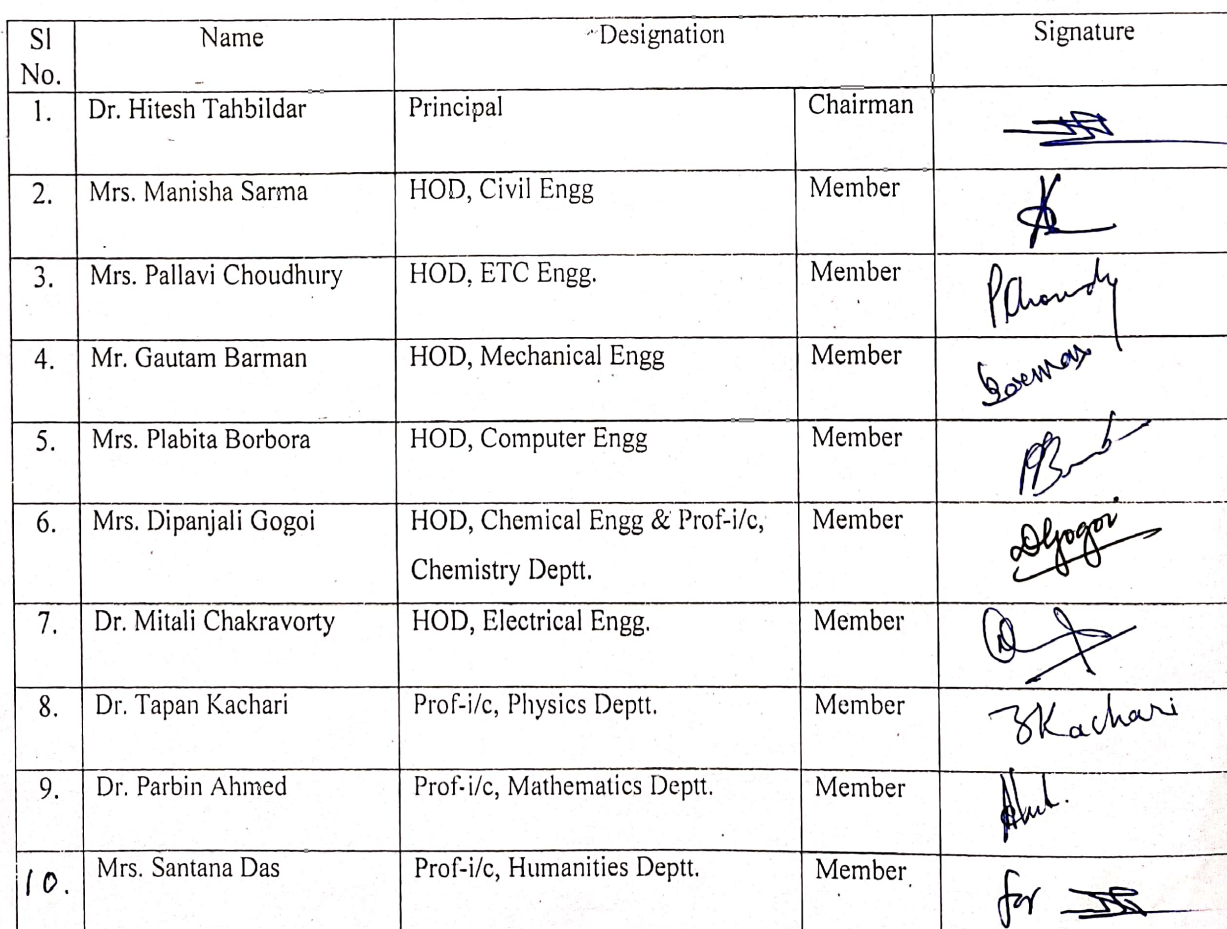 Sl No. Name Designation Signature
1. Dr. Hitesh Tahbildar Principal Chairman
2. Mrs. Manisha Sarma HOD, Civil Engg Member
3. Mrs. Pallavi Choudhury HOD, ETC Engg. Member PChoudy
4. Mr. Gautam Barman HOD, Mechanical Engg Member
5. Mrs. Plabita Borbora HOD, Computer Engg Member
6. Mrs. Dipanjali Gogoi HOD, Chemical Engg & Prof-i/c, Member DGogoi
Chemistry Deptt.
7. Dr. Mitali Chakravorty HOD, Electrical Engg. Member
8. Dr. Tapan Kachari Prof-i/c, Physics Deptt. Member TKachari
9. Dr. Parbin Ahmed Prof-i/c, Mathematics Deptt. Member
10. Mrs. Santana Das Prof-i/c, Humanities Deptt. Member for